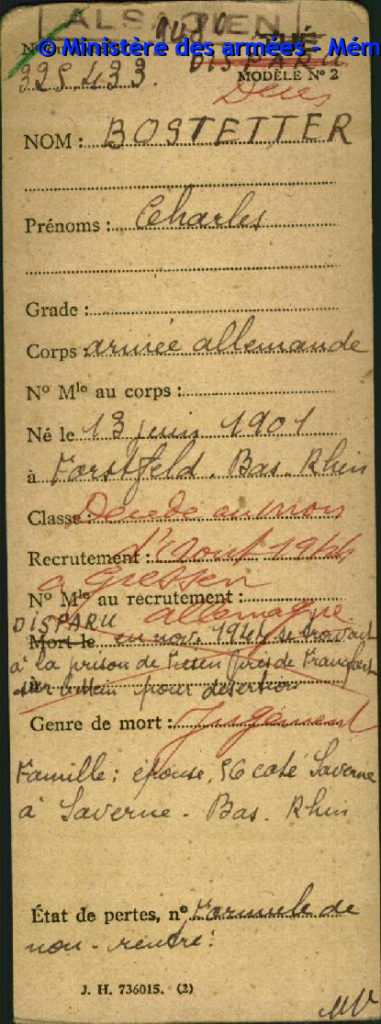 ALSACIEN
© Ministère des armées - Mém
325.433. DISPARU
MODÈLE N° 2
Décès
NOM : BOSTETTER
Prénoms : Charles
Grade :
Corps : armée allemande
N° Mle au corps :
Né le 13 juin 1901
à Forstfeld. Bas. Rhin
Classe : Décédé au mois
Recrutement : d'août 1944
à Giessen
N° Mle au recrutement :
DISPARU allemagne
Mort le en nov. 1944 se trouvait
à la prison de près de Francfort
sur le Main pour désertion
Genre de mort : Jugement
Famille : épouse, 56 coté Saverne
à Saverne - Bas. Rhin
État de pertes, n° Formule de
non-rentré.
J. H. 736015. (2)